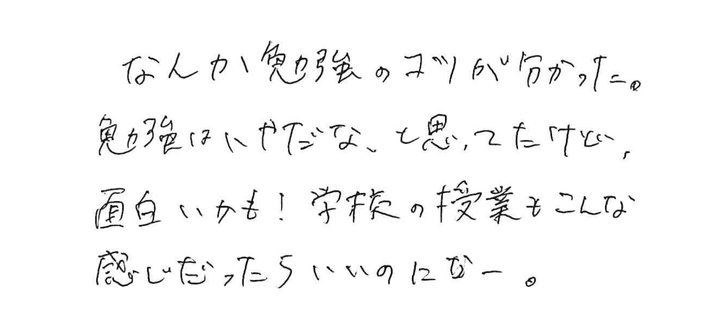 なんか勉強のコツが分かった。
勉強はいやだな、と思ってたけど、
面白いかも！学校の授業もこんな
感じだったらいいのになー。